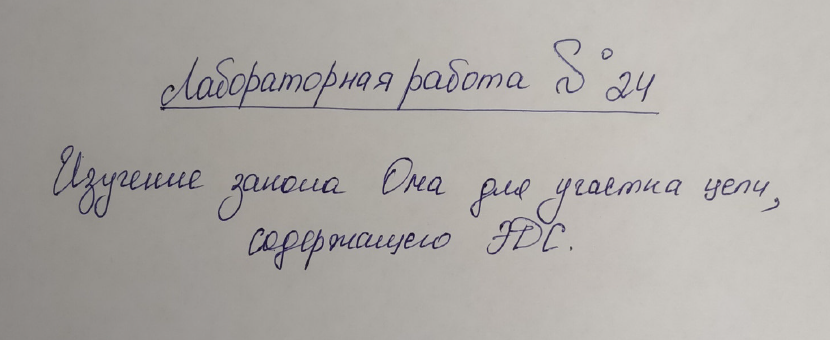 Лабораторная работа № 24
Изучение закона Ома для участка цепи,
содержащего ЭДС.